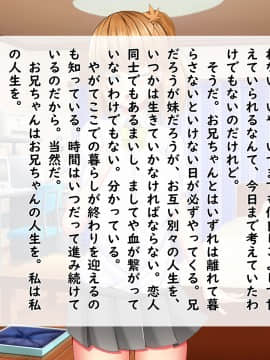 えていられるなんて、今日まで考えていたわ
けでもないのだけれど。
そうだ。お兄ちゃんとはいずれは離れて暮
らさないといけない日が必ずやってくる。兄
だろうが妹だろうが、お互い別々の人生を、
いつかは生きていかなければならない。恋人
同士でもあるまいし、ましてや血が繋がって
いないわけでもない。分かっている。
やがてここでの暮らしが終わりを迎えるの
も知っている。時間はいつだって進み続けて
いるのだから。当然だ。
お兄ちゃんはお兄ちゃんの人生を。私は私
の人生を。